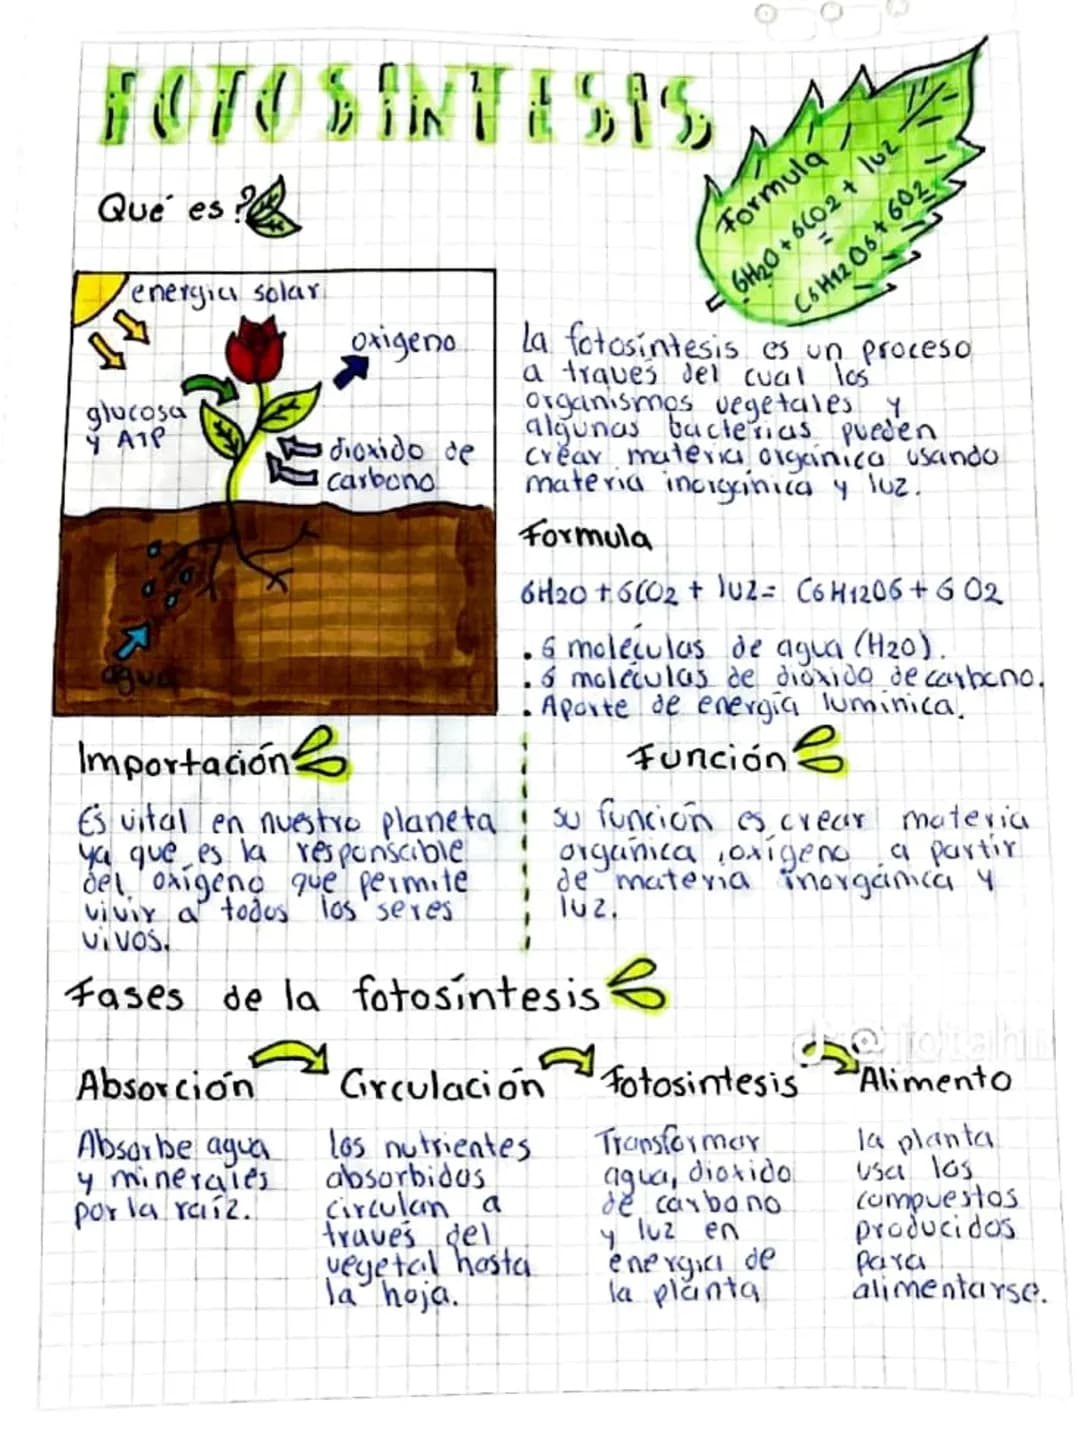 FOTOSINTESIS
Qué es?
Formula
6H2O + 6CO2 + luz
=
C6H12O6 + 6O2
energia solar
oxigeno
glucosa
y ATP
dioxido de
carbono
agua
La fotosíntesis es un proceso
a traves del cual los
organismos vegetales y
algunas bacterias pueden
crear materia orgánica usando
materia inorgánica y luz.
Formula
6H2O + 6CO2 + luz = C6H12O6 + 6O2
. 6 moléculas de agua (H2O).
. 6 moléculas de dióxido de carbono.
. Aporte de energía luminica.
Importación
Es vital en nuestro planeta
ya que es la responsable
del oxígeno que permite
vivir a todos los seres
vivos.
Función
su función es crear materia
orgánica, oxígeno a partir
de materia inorgánica y
luz.
Fases de la fotosíntesis
Absorción
Absorbe agua
y minerales
por la raíz.
Circulación
los nutrientes
absorbidos
circulan a
través del
vegetal hasta
la hoja.
fotosintesis
Transformar
agua, dioxido
de carbono
y luz en
energia de
la planta
Alimento
la planta
usa los
compuestos
producidos
para
alimentarse.